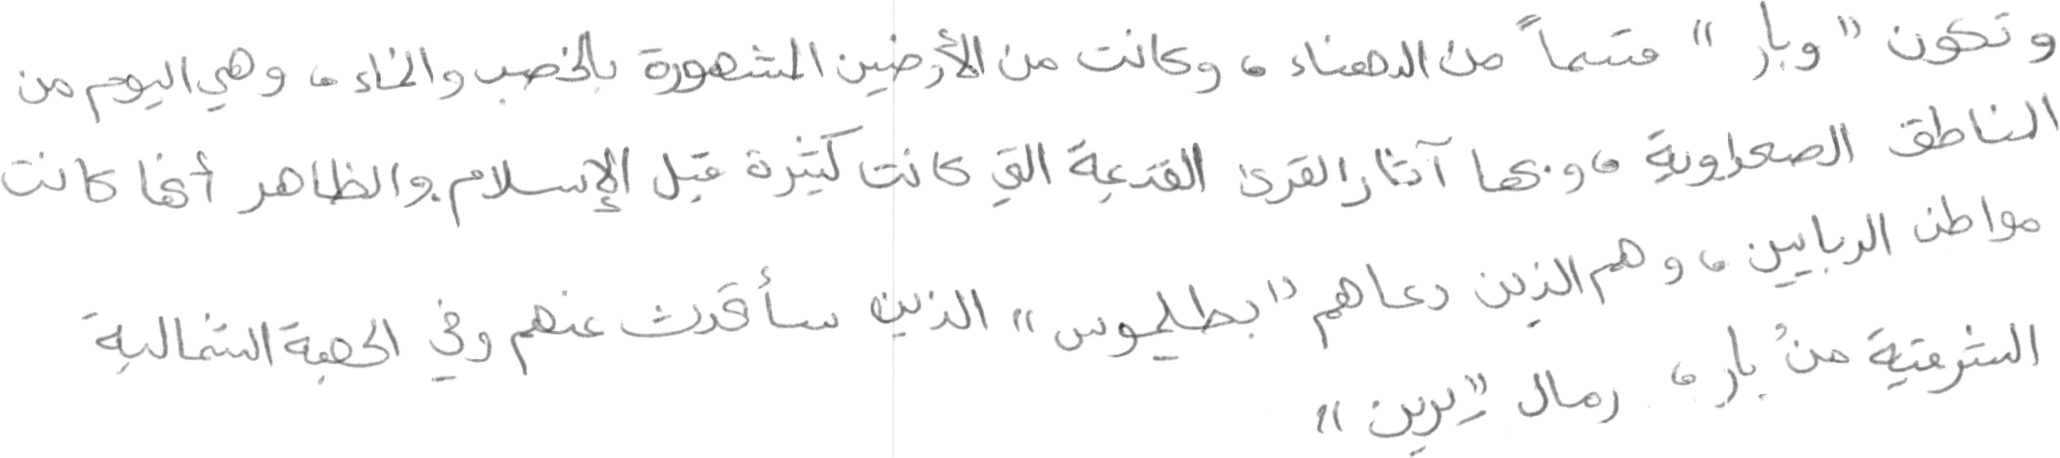 وتكون "وبار" قسماً من الدهناء، وكانت من الأرضين المشهورة بالخصب والنماء، وهي اليوم من
المناطق الصحراوية، وبها آثار القرى القديمة التي كانت كثيرة قبل الإسلام. والظاهر أنها كانت
مواطن الربابيين، وهم الذين دعاهم "بطليموس" الذين سأتحدث عنهم وفي الجهة الشمالية
الشرقية من بار، رمال "يبرين"